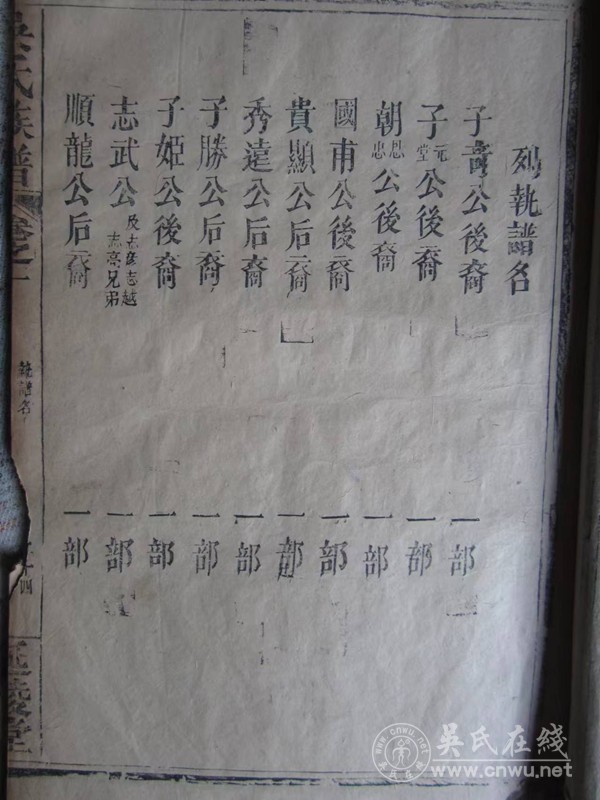 列執譜名
子音公後裔 一部
子元堂公後裔 一部
朝思忠公後裔 一部
國甫公後裔 一部
貴顯公后裔 一部
秀達公后裔 一部
子勝公后裔 一部
子姬公後裔 一部
志武公及志彦志越志亮兄弟 一部
順龍公后裔 一部
吳氏族譜 卷之一
執譜名
四
延陵堂
吴氏在线
www.cnwu.net